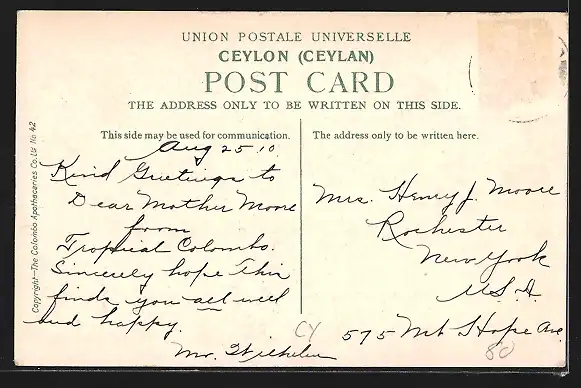 UNION POSTALE UNIVERSELLE
CEYLON (CEYLAN)
POST CARD
THE ADDRESS ONLY TO BE WRITTEN ON THIS SIDE.
This side may be used for communication.
Aug 25 10
Kind Greetings to
Dear Mother Moore
from
Tropical Colombo.
Sincerely hope this
finds you all well
and happy.
Mr. Wilhelm
The address only to be written here.
Mrs. Henry J. Moore
Rochester
New York
U.S.A.
575 Mt Hope Ave.
CY
80
Copyright—The Colombo Apothecaries Co. Ld No 42